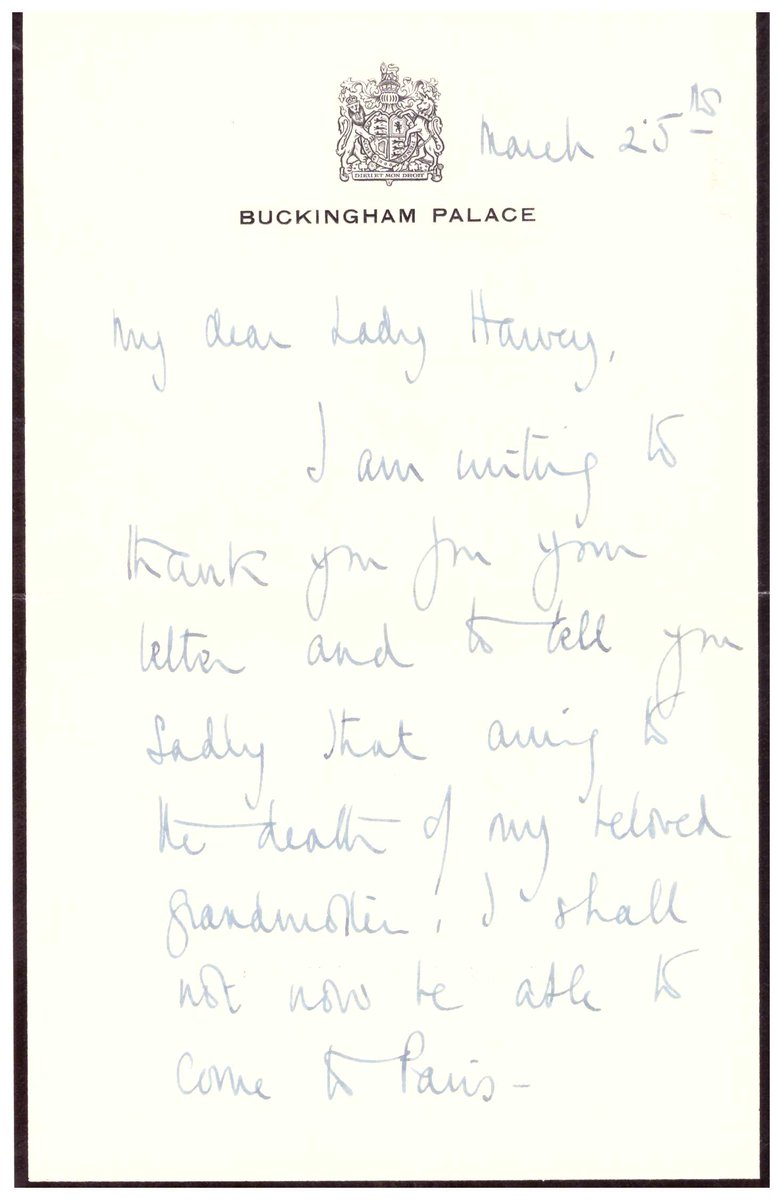 DIEU ET MON DROIT
March 25th
BUCKINGHAM PALACE
My dear Lady Harvey,
I am writing to
thank you for your
letter and to tell you
sadly that owing to
the death of my beloved
grandmother, I shall
not now be able to
come to Paris –